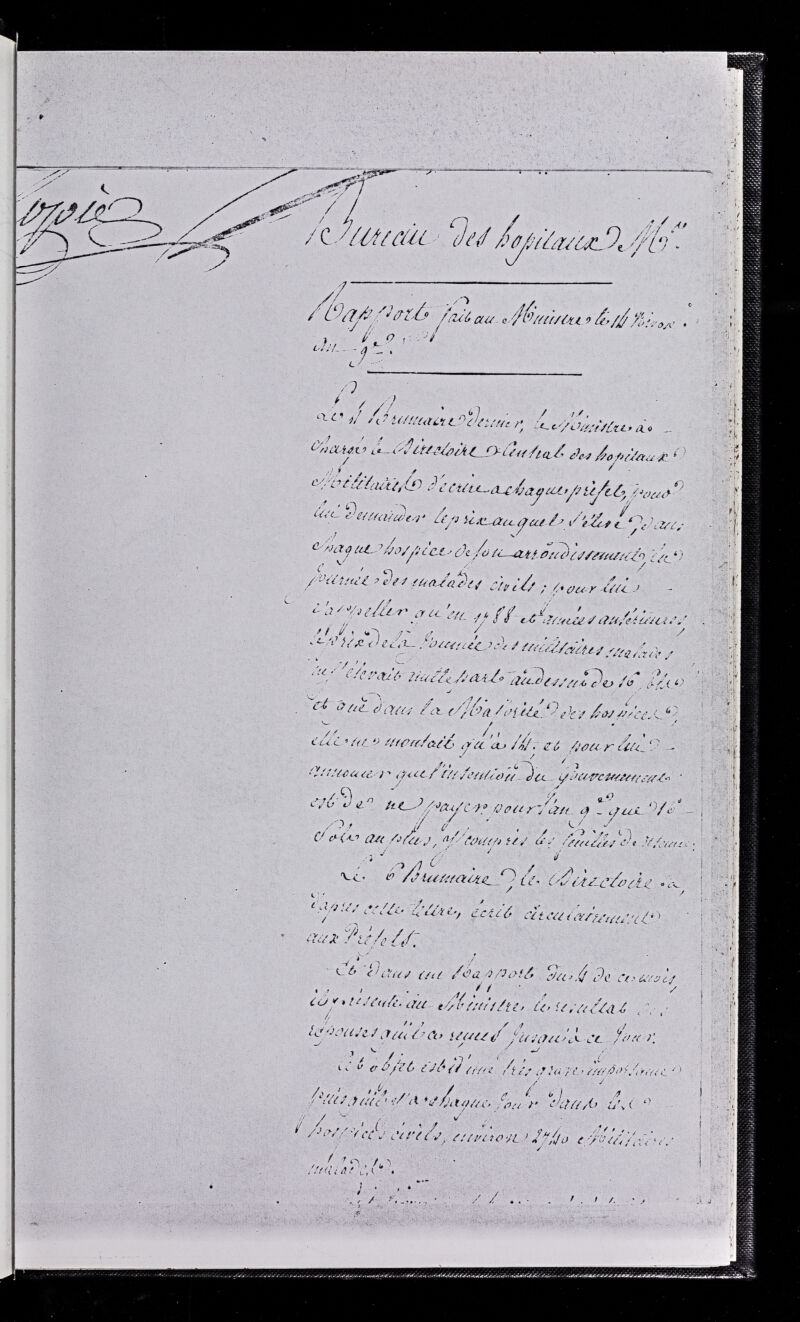 Copie
Bureau des hopitaux M.res
Rapport fait au Ministre le 14 Nivose
an 9.e
Le 4 Brumaire dernier, le Ministre a
chargé le Directoire Central des hopitaux
Militaires d'écrire a chaque préfet, pour
lui demander le prix auquel s'éleve, dans
chaque hospice de son arrondissement, la
Journée des malades civils; pour lui
rappeller qu'en 1788 et années antérieures,
le prix de la Journée des militaires malades
ne s'élevait nulle part au dessus de 16 sols
et que dans la Majorité des hospices,
elle ne montait qu'à 14; et pour lui
annoncer que l'intention du Gouvernement
est de ne payer pour l'an 9.e que 16
Sols au plus, y compris les feuilles de
Le 6 Brumaire, le Directoire a,
d'après cette lettre, écrit circulairement
aux Préfets.
Et dans un Rapport du 4 de ce mois,
il présente au Ministre le resultat des
réponses qu'il a reçues Jusqu'à ce Jour.
Cet objet est d'une très grave importance
puisqu'il y a chaque Jour dans les
hospices civils, environ 2740 Militaires
malades.